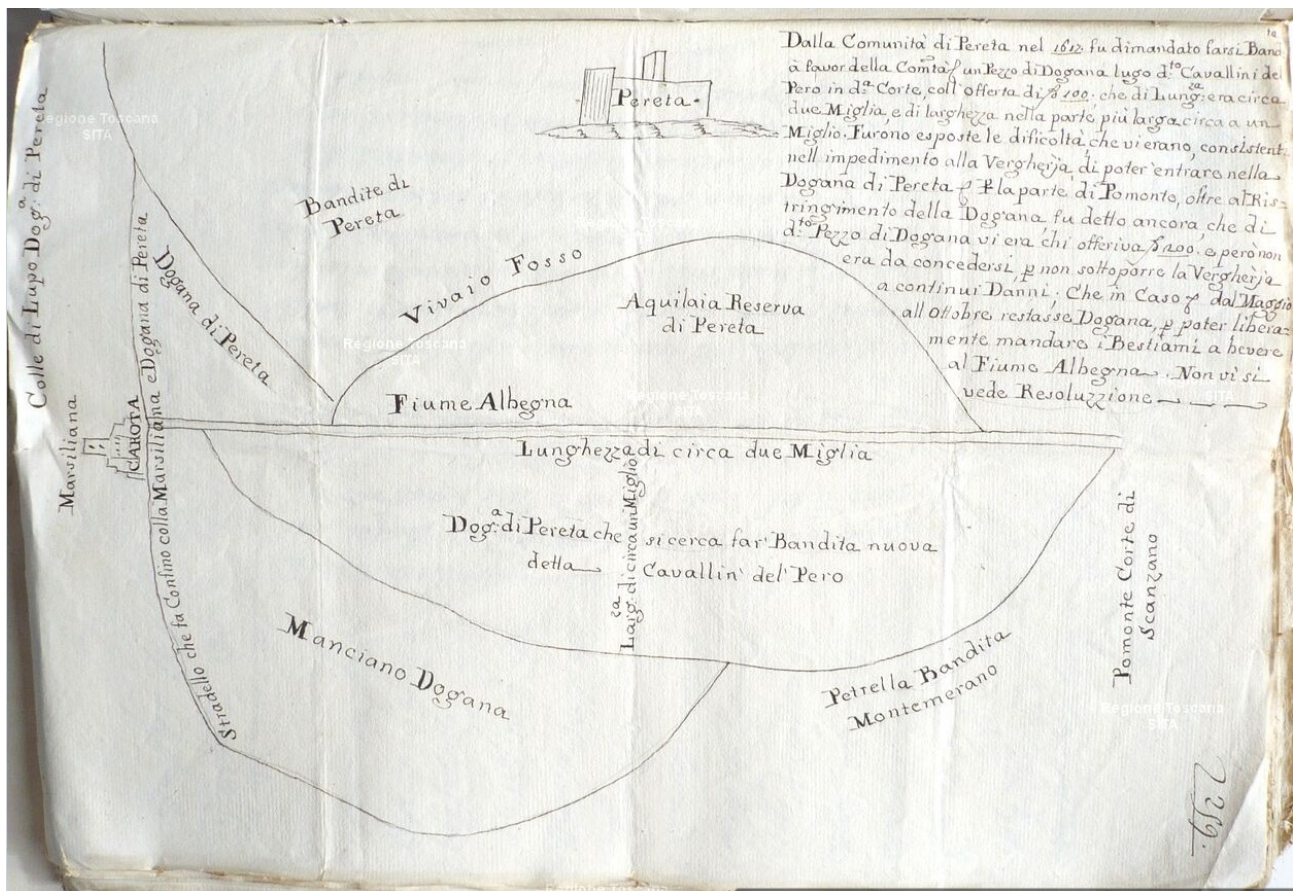 Dalla Comunità di Pereta nel 1612. fu dimandato farsi Band
à favor della Comtà un Pezzo di Dogana lugo d.to Cavallini del
Pero in d.a Corte, coll'offerta di 100. che di Lung.za era circa
due Miglia, e di larghezza nella parte più larga circa a un
Miglio. Furono esposte le dificoltà, che vi erano, consistent:
nell impedimento alla Vergherja, di poter'entrare nella
Dogana di Pereta per la parte di Pomonto, oltre al Ris=
tringimento della Dogana, fu detto ancora, che di
d.to Pezzo di Dogana vi era, chi offeriva 200. e però non
era da concedersi, p non sottoporre la Vergherja
a continui Danni; Che in Caso dal Maggio
all'Ottobre restasse Dogana, p poter libera=
mente mandare i Bestiami a bevere
al Fiume Albegna. Non vi si
vede Resoluzzione
Pereta.
Colle di Lupo Dog.a di Pereta
Bandite di
Pereta
Dogana di Pereta
Vivaio Fosso
Aquilaia Reserva
di Pereta
Fiume Albegna
Marsiliana
CAROTA
Stradello che fa Confino colla Marsiliana e Dogana di Pereta
Lunghezza di circa due Miglia
Larg.za di circa un Miglio
Dog.a di Pereta che si cerca far' Bandita nuova
detta Cavallin' del' Pero
Manciano Dogana
Petrella Bandita
Montemerano
Pomonte Corte di
Scanzano
2259.
Regione Toscana
SITA
Regione Toscana
SITA
Regione Toscana
SITA
Regione Toscana
SITA
Regione Toscana